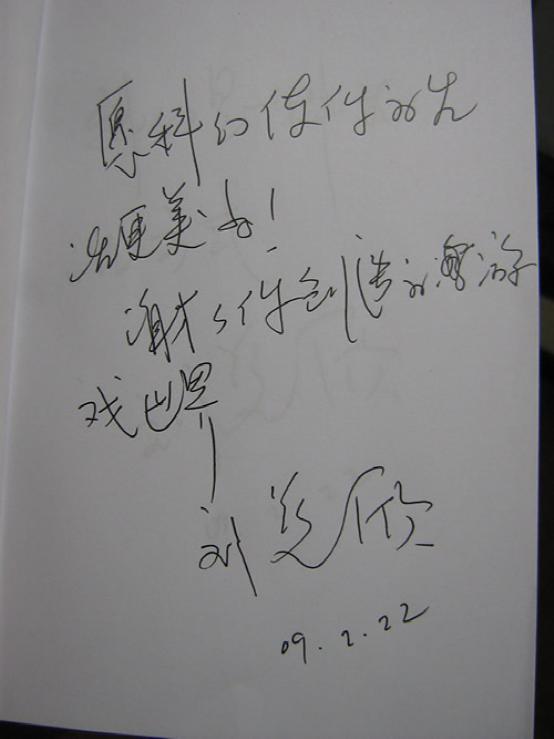 愿科幻使你的生
活更美好!
谢谢你创造的游
戏世界
刘慈欣
09.2.22